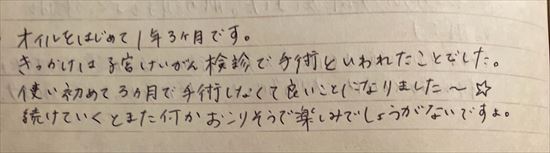 オイルをはじめて1年3ヶ月です。
きっかけは子宮けいがん検診で手術といわれたことでした。
使い初めて3ヵ月で手術しなくて良いことになりました〜☆
続けていくとまた何かおこりそうで楽しみでしょうがないですよ。